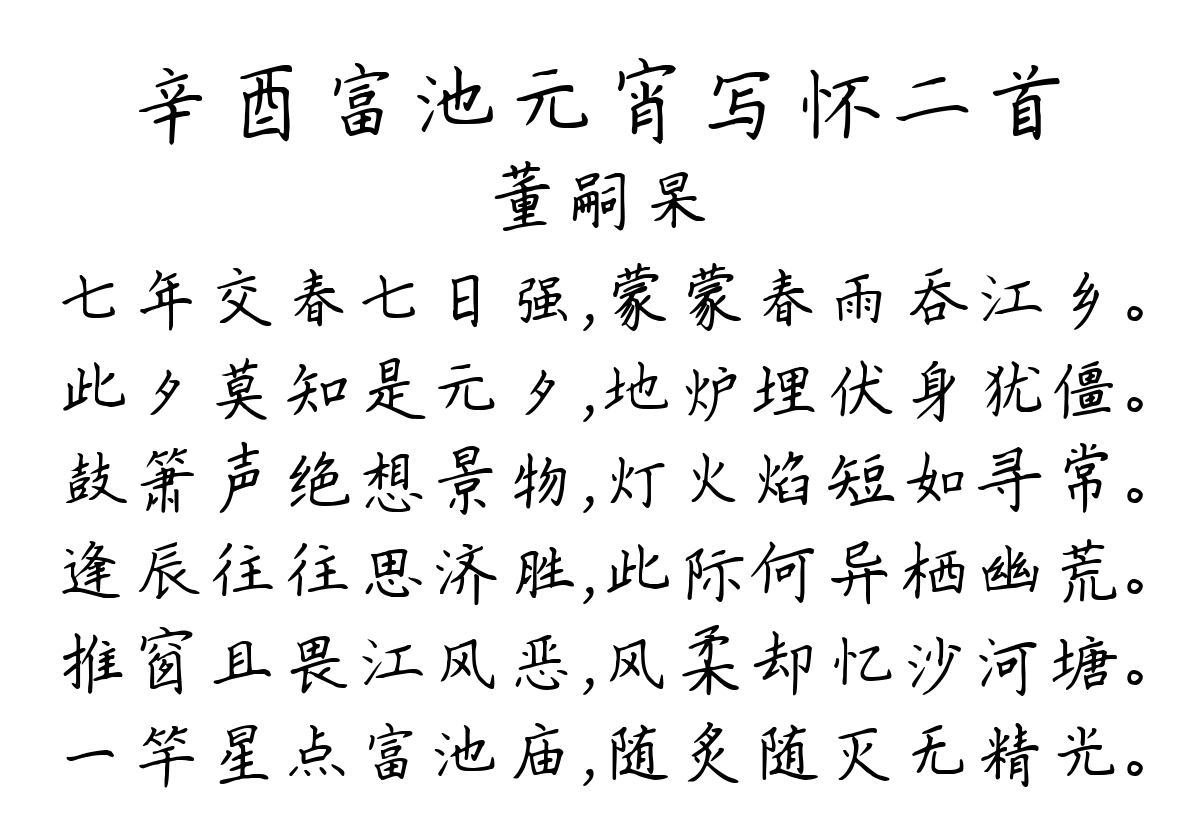 辛酉富池元宵写怀二首
董嗣杲
七年交春七日强,蒙蒙春雨吞江乡。
此夕莫知是元夕,地炉埋伏身犹僵。
鼓箫声绝想景物,灯火焰短如寻常。
逢辰往往思济胜,此际何异栖幽荒。
推窗且畏江风恶,风柔却忆沙河塘。
一竿星点富池庙,随炙随灭无精光。